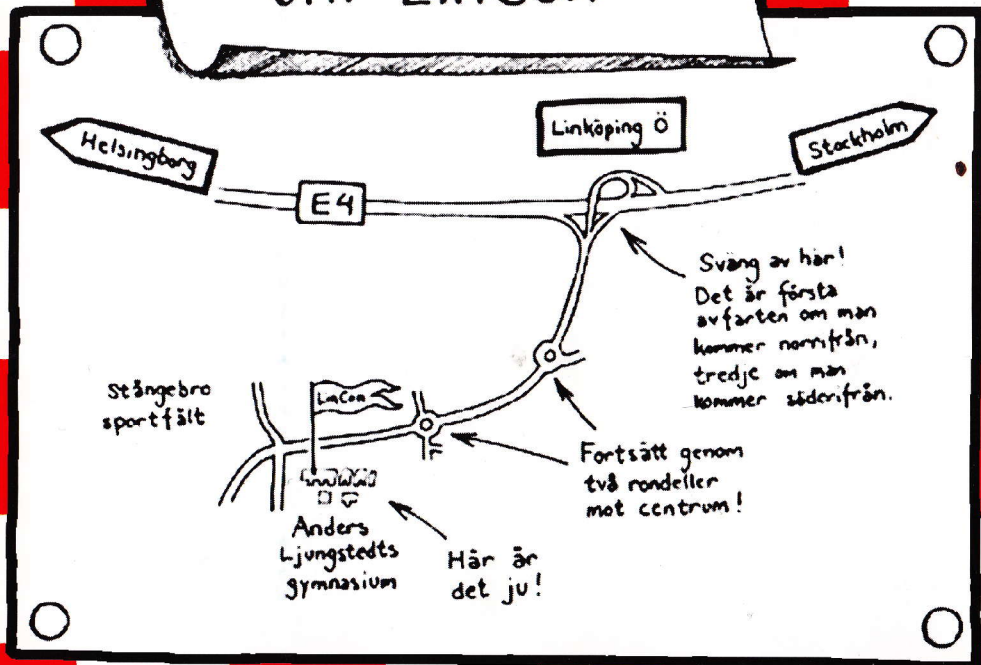 Linköping Ö
Helsingborg
Stockholm
E4
Sväng av här!
Det är första
avfarten om man
kommer norrifrån,
tredje om man
kommer söderifrån.
Stångebro
sportfält
LinCon
Fortsätt genom
två rondeller
mot centrum!
Anders
Ljungstedts
gymnasium
Här är
det ju!